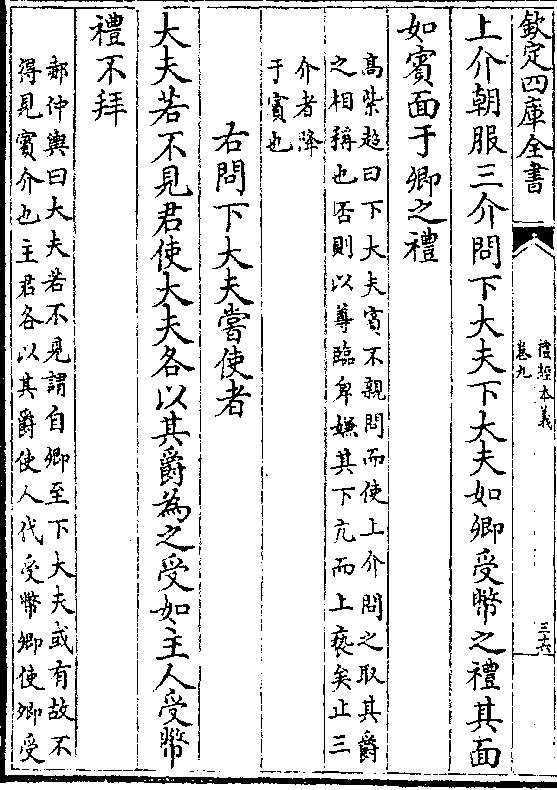 欽定四庫全書
禮經本義
卷九
三六
上介朝服三介問下大夫下大夫如卿受幣之禮其面
如賓面于卿之禮
高紫超曰下大夫賓不親問而使上介問之取其爵
之相稱也否則以尊臨卑嫌其下亢而上亵矣止三
介者降
于賓也
右問下大夫嘗使者
大夫若不見君使大夫各以其爵為之受如主人受幣
禮不拜
郝仲輿曰大夫若不見謂自卿至下大夫或有故不
得見賓介也主君各以其爵使人代受幣卿使卿受